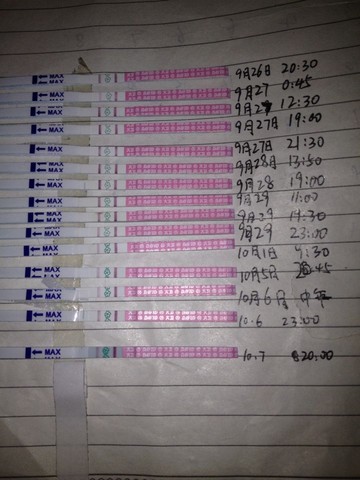 MAX 9月26日 20:30
MAX 9月27 0:45
MAX 9月27 12:30
MAX 9月27日 19:00
MAX 9月27日 21:30
MAX 9月28日 13:50
MAX 9月28 19:00
MAX 9月29 11:00
MAX 9月29 14:30
MAX 9月29 23:00
MAX 10月1日 9:30
MAX 10月5日 20:45
MAX 10月6日 中午
MAX 10.6 23:00
MAX 10.7 20:00